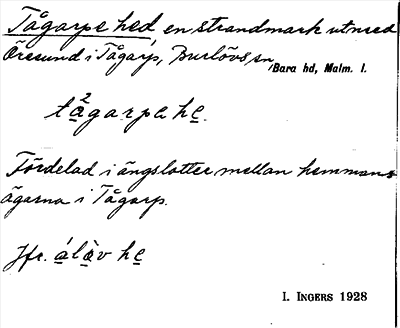 Tågarpe hed, en strandmark utmed
Öresund i Tågarp, Burlövs sn, Bara hd, Malm. l.
tå²garpa he̲.
Fördelad i ängslotter mellan hemmans-
ägarna i Tågarp.
Jfr. á̲là̲v he̲
I. INGERS 1928